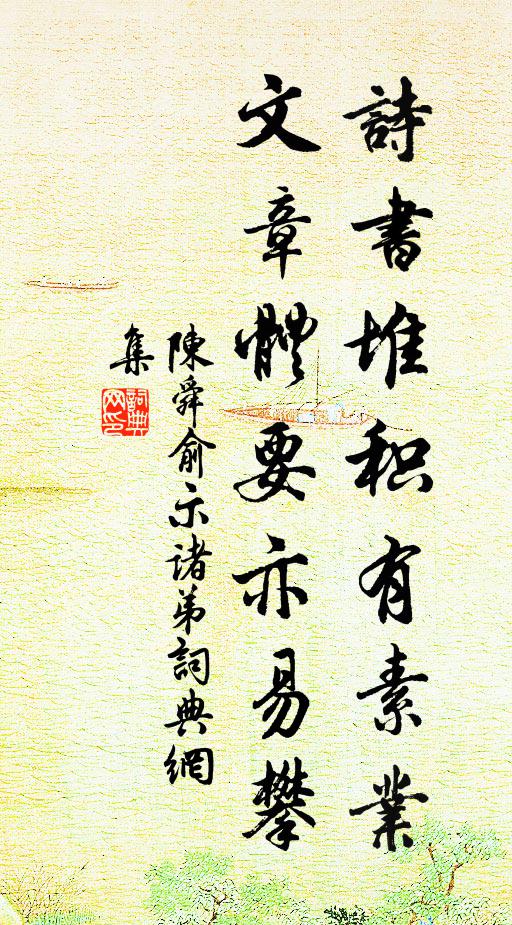 詩書堆积有素業
文章體要亦易攀
陳舜俞示诸弟詞典網
集
詞典
网印